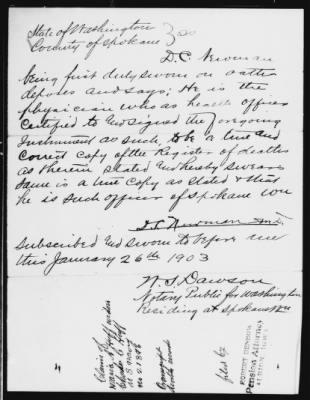 State of Washington } ss
County of Spokane
D.C. Newman
being first duly sworn on oath
deposes and says; He is the
physician who as health officer
certified to and signed the foregoing
Instrument as such, to be a true and
Correct copy of the Register of deaths
as therein stated and hereby swears
same is a true copy as stated & that
he is such officer of Spokane Wn
D.C. Newman M.D.
Subscribed and sworn to before me
this January 26th 1903
W. S. Dawson
Notary Public for Washington
Residing at Spokane Wn
Claim of
U.S. Navy
filed by
Pension Attorney